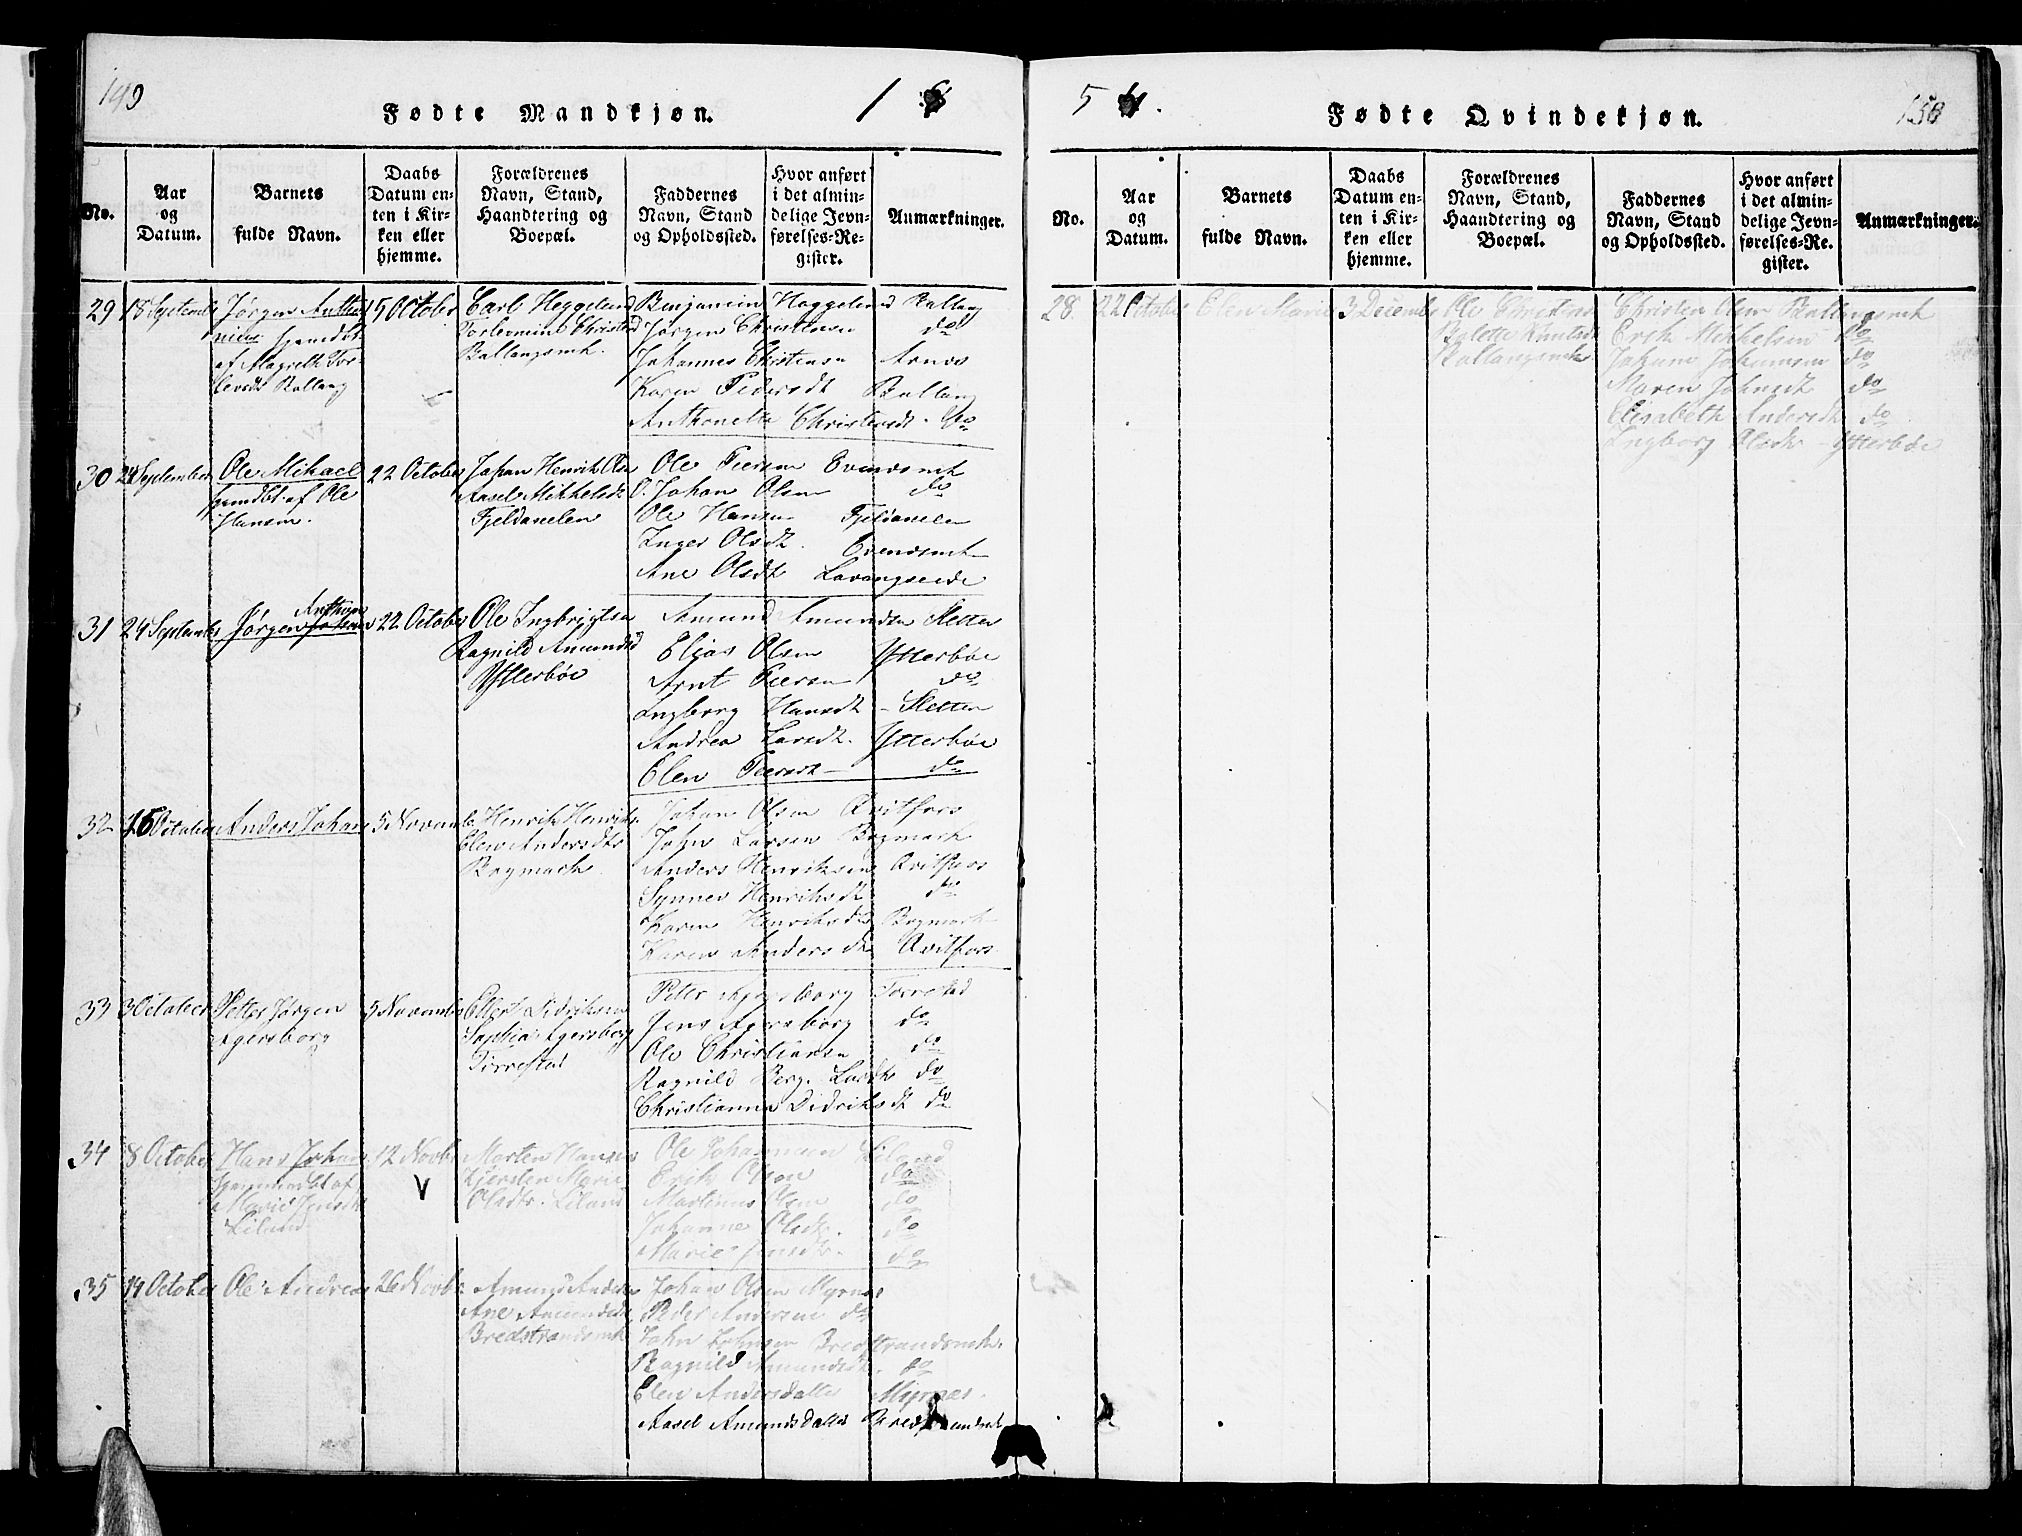 149
Fødte Mandkjøn.
1
No.
Aar og Datum.
Barnets fulde Navn.
Daabs Datum enten i Kirken eller hjemme.
Forældrenes Navn, Stand, Haandtering og Boepæl.
Faddernes Navn, Stand og Opholdssted.
Hvor anført i det almindelige Jevnførelses-Register.
Anmærkninger.
29
18 September
Jørgen Antho
nius hjemdbt
af Magrethe Tor
levdt Ballang
15 October
Carl Heggelund
Christensd
Ballangsmk.
Benjamin Heggelund Ballang
Jørgen Christensen do
Johannes Christensen Arnes
Karen Pedersdt Ballang
Anthonette Christensdt. do
30
24 September
Ole Mikael
hjemdbt af Ole
Hansen.
22 October
Johan Henrik Olsen
Aasel Mikkelsdt
Fjeldanelen
Ole Peersen Evensmk
O. Johan Olsen do
Ole Hansen Fjeldanelen
Inger Olsdt. Evensmk
Ane Olsdt Lavangseide
31
24 September
Anthon
Jørgen Johan
22 October
Ole Ingbrigtsen
Ragnild Amundsd
Ytterbøe
Amund Amundsen Sletten
Elias Olsen Ytterbøe
Arnt Peersen do
Ingborg Hansdt - Sletten
Andrea Larsdt. Ytterbøe
Elen Peersdt - do
32
15 October
Anders Johan
5 Novemb
Henrik Henriks.
Elen Andersdtr
Bogmark
Johan Olsen Qvitfors
John Larsen Bogmark
Anders Henriksen Qvitfors
Synnev Henriksdt do
Karen Henriksdt Bogmark
Karen Andersdt Qvitfors
33
3 October
Petter Jørgen
Agersborg
5 Novembr
Ellert Didriksen
Sophia Agersborg
Torrestad
Peter Agersborg Torrestad
Jens Agersborg do
Ole Christiansen do
Ragnild Berg. Larsdt do
Christianna Didriksdt do
34
8 October
Hans Johan
hjemmedbt af
Marie Jensdt
Liland
12 Novbr
V
Morten Hansen
Kjersten Marie
Olsdtr. Liland
Ole Johannesen Liland
Erik Olsen do
Martinus Olsen do
Johanne Olsdtr. do
Marie Jensdtr. do
35
14 October
Ole Andreas
26 Novbr.
Amund Anders
Ane Amundsdt
Bredstrandsmk
Johan Olsen Myrnes
Peder Andersen do
John Johnsen Bredstrandsmk.
Ragnild Amundsdt. do
Elen Andersdatter Myrnes.
Aasel Amundsdatter Bredstrandsmk
5
Fødte Qvindekjøn.
150
No.
Aar og Datum.
Barnets fulde Navn.
Daabs Datum enten i Kirken eller hjemme.
Forældrenes Navn, Stand, Haandtering og Boepæl.
Faddernes Navn, Stand og Opholdssted.
Hvor anført i det almindelige Jevnførelses-Register.
Anmærkninger.
28
22 October
Elen Marie
3 Decembr
Ole Christens
Bolette Knutsd
Ballangsmk
Christen Olsen Ballangsmk
Erik Mikkelsen do
Johan Johansen do
Maren Johnsdt do
Elisabeth Andersdt do
Ingborg Olsdtr - Ytterbøe